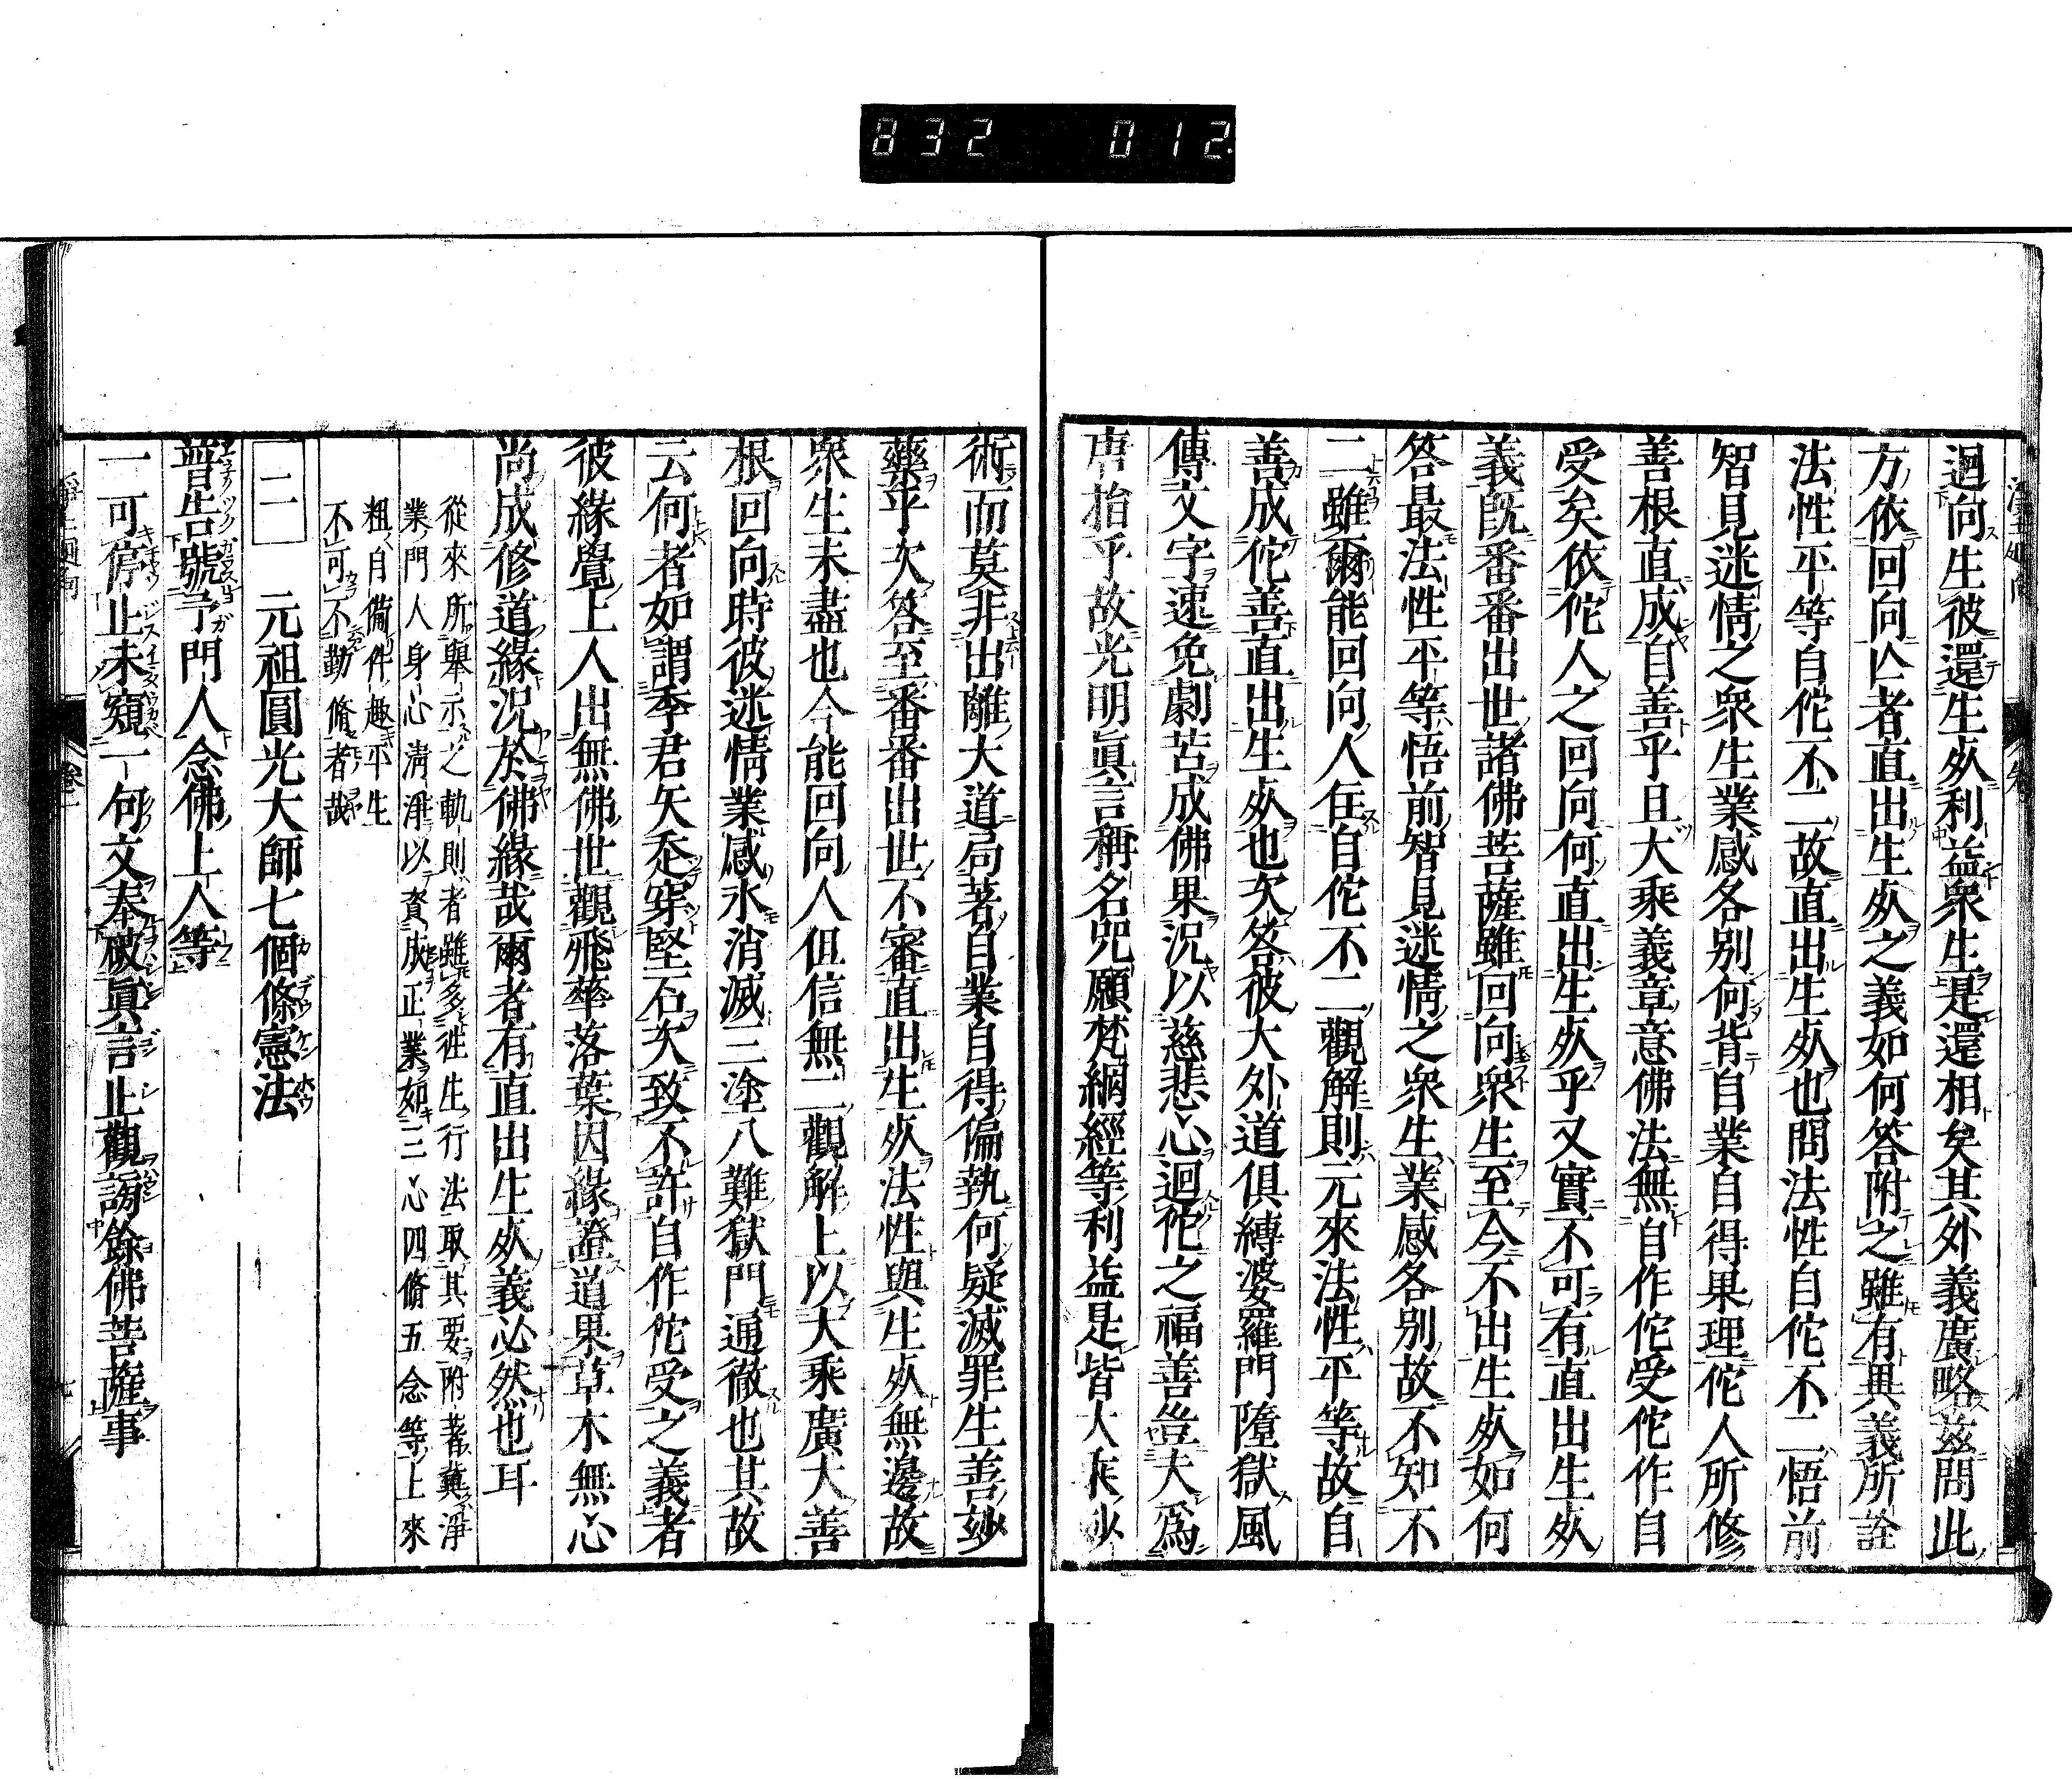 832 012
迴向生彼還生処利益衆生是還相矣其外義廣略茲問此
方依回向亾者直出生処之義如何答附之雖有異義所詮
法性平等自佗不二故直出生処也問法性自佗不二悟前
智見迷情之衆生業感各別何背自業自得果理佗人所修
善根直成自善乎且大乘義章意佛法無自作佗受佗作自
受矣依佗人之回向何直出生処乎又實不可有直出生処
義既番番出世諸佛菩薩雖回向衆生至今不出生処如何
答最法性平等悟前智見迷情之衆生業感各別故不知不
二雖爾能回向人住自佗不二觀解則元來法性平等故自
善成佗善直出生処也次答彼大外道俱縛婆羅門墮獄風
傳文字速免劇苦成佛果況以慈悲心迴佗之福善豈大爲
唐捐乎故光明眞言稱名咒願梵網經等利益是皆大乘妙
術而莫非出離大道局著自業自得偏執何疑滅罪生善妙
藥乎次答至番番出世不審直出生処法性與生処無邊故
衆生未盡也今能回向人但信無二觀解上以大乘廣大善
根回向時彼迷情業感氷消滅三塗八難獄門通徹也其故
云何者如謂季君矢忝穿堅石次致不許自作佗受之義者
彼緣覺上人出無佛世觀飛華落葉因緣證道果草木無心
尚成修道緣況於佛緣哉爾者有直出生処義必然也耳
從來所舉示之軌則者雖多往生行法取其要附著冀淨
業門人身心淸淨以資成正業如三心四脩五念等上來
粗自備件趣平生
不可不勤脩者哉
二 元祖圓光大師七個條憲法
普告號予門人念佛上人等
一可停止未窺一句文奉破眞言止觀謗餘佛菩薩事